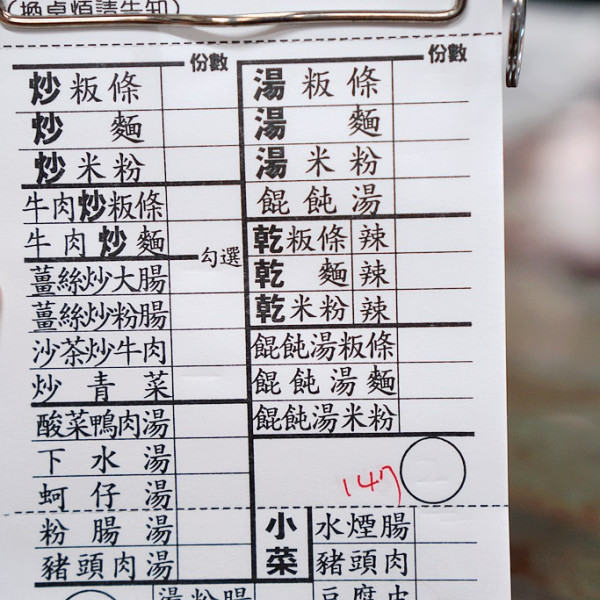 (換桌煩請告知)
份數
炒粄條
炒麵
炒米粉
牛肉炒粄條
牛肉炒麵
勾選
薑絲炒大腸
薑絲炒粉腸
沙茶炒牛肉
炒青菜
酸菜鴨肉湯
下水湯
蚵仔湯
粉腸湯
豬頭肉湯
份數
湯粄條
湯麵
湯米粉
餛飩湯
乾粄條 辣
乾麵 辣
乾米粉 辣
餛飩湯粄條
餛飩湯麵
餛飩湯米粉
147
小菜
水煙腸
豬頭肉
湯粉腸
豆腐皮